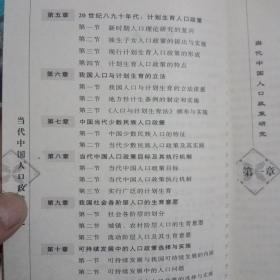 第五章 20世纪八九十年代:计划生育人口政策
第一节 新时期人口理论研究的复兴
第二节 独生子女人口政策的提出与实施
第三节 现行计划生育人口政策的形成
第四节 计划生育人口政策的特点
第六章 我国人口与计划生育的立法
第一节 我国人口与计划生育的立法背景
第二节 地方性计生条例的制定和实施
第三节 《人口与计划生育法》颁布与实施
第七章 中国当代少数民族人口政策
第一节 中国少数民族人口的特征
第二节 中国少数民族人口政策及其实施
第八章 当代中国人口政策目标及其执行机制
第一节 当代中国人口政策目标
第二节 当代中国人口政策执行机制
第三节 实行广泛的计划生育
第九章 我国社会各阶层人口的生育意愿
第一节 社会各阶层的划分
第二节 城镇、农村阶层人口的生育意愿
第三节 流动阶层人口及其生育意愿
第十章 可持续发展中的人口政策选择与实施
第一节 可持续发展与我国可持续发展的内涵
第二节 可持续发展中的人口问题
当代中国人口政
当代中国人口政策研究
第
章